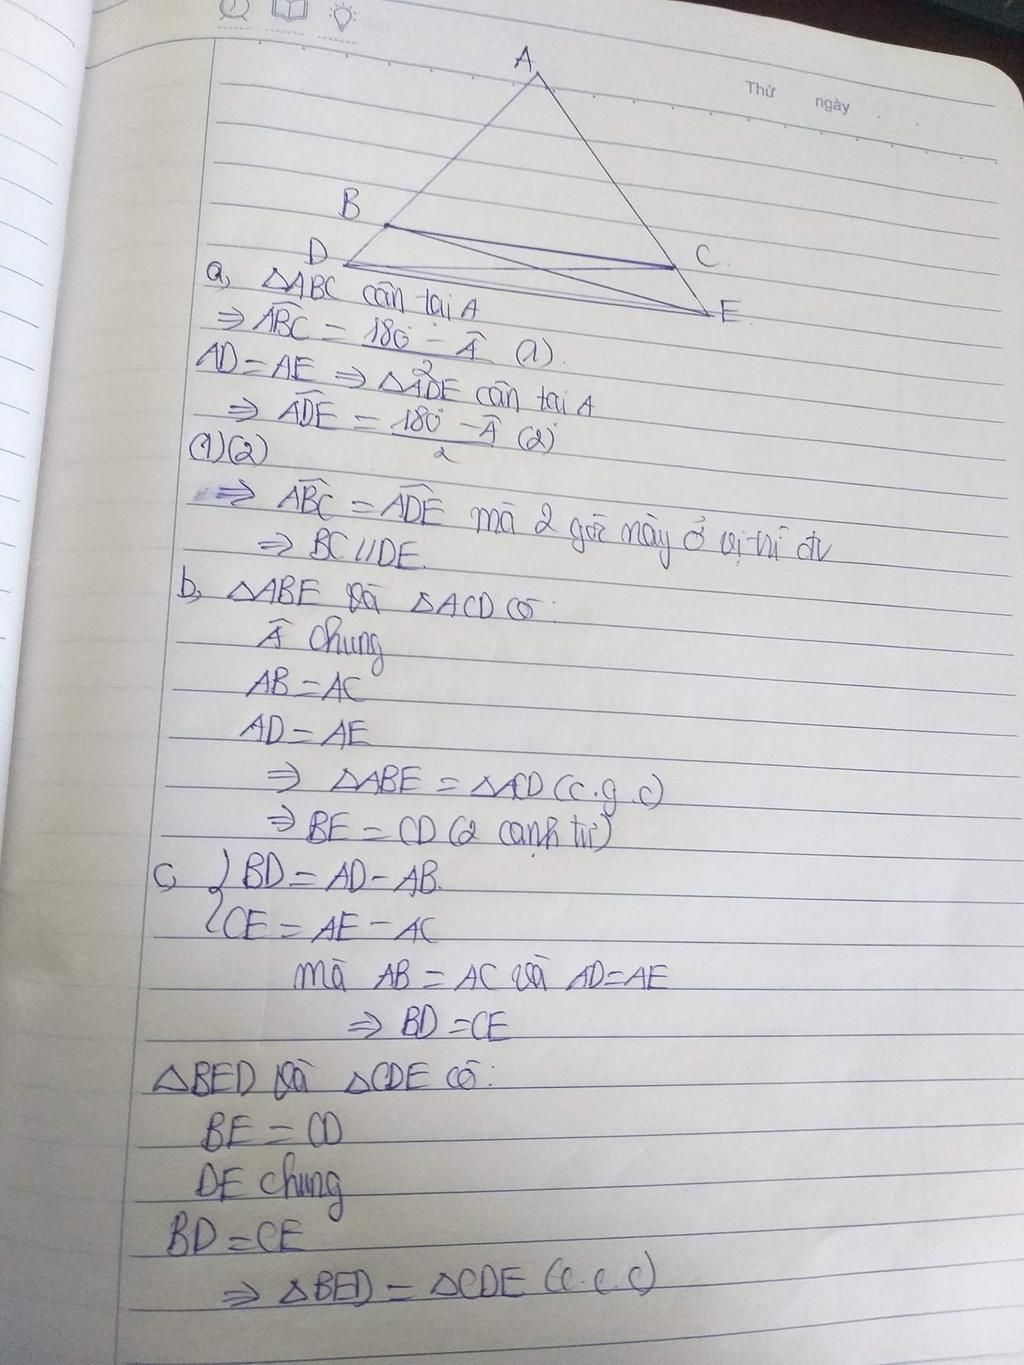 Thứ ngày
A
B
D
C
E
a, △ABC cân tại A
⇒ \widehat{ABC} = \frac{180° - \widehat{A}}{2} (1).
AD = AE ⇒ △ADE cân tại A
⇒ \widehat{ADE} = \frac{180° - \widehat{A}}{2} (2)
(1)(2)
⇒ \widehat{ABC} = \widehat{ADE} mà 2 góc này ở vị trí đv
⇒ BC // DE.
b, △ABE và △ACD có:
\widehat{A} chung
AB = AC
AD = AE
⇒ △ABE = △ACD (c.g.c)
⇒ BE = CD (2 cạnh tư)
c, { BD = AD - AB.
CE = AE - AC
mà AB = AC và AD = AE
⇒ BD = CE
△BED và △CDE có:
BE = CD
DE chung
BD = CE
⇒ △BED = △CDE (c.c.c)